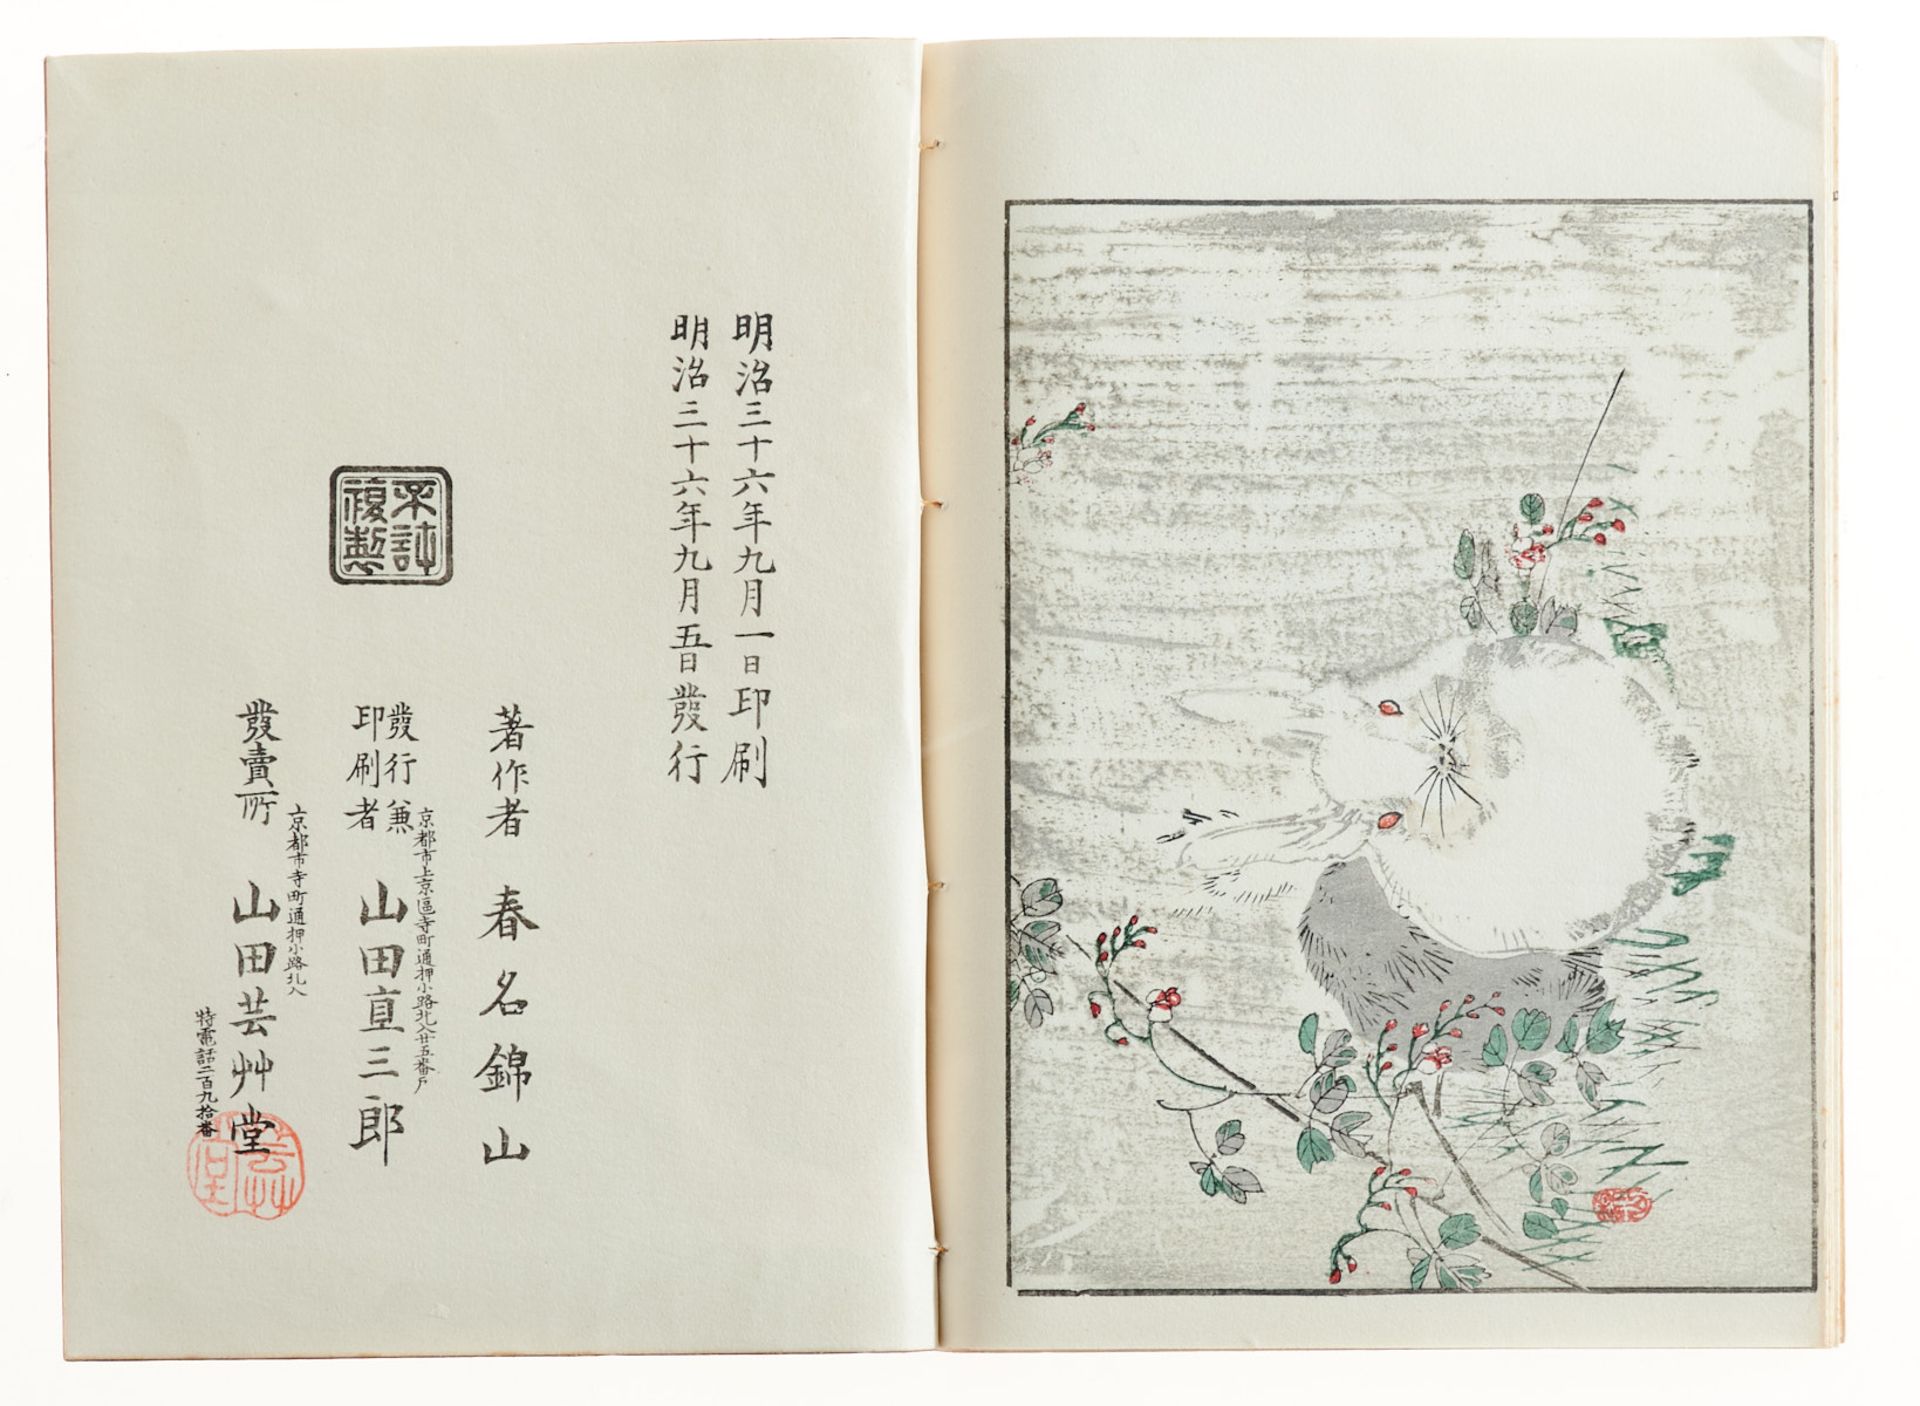 明治三十六年九月一日印刷
明治三十六年九月五日發行
不許
複製
著作者 春名錦山
京都市上京區寺町通押小路北入廿五番戸
發行兼
印刷者
山田直三郎
京都市寺町通押小路北入
發賣所 山田芸艸堂
特電話二百九拾番
芸艸
堂